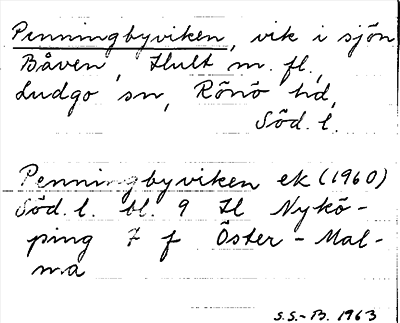 Penningbyviken, vik i sjön
Båven, Hult m. fl.,
Ludgo sn, Rönö hd,
Söd. l.
Penningbyviken ek (1960)
Söd. l. bl. 9 Il Nykö-
ping 7 f Öster-Mal-
ma
S.S.-B. 1963